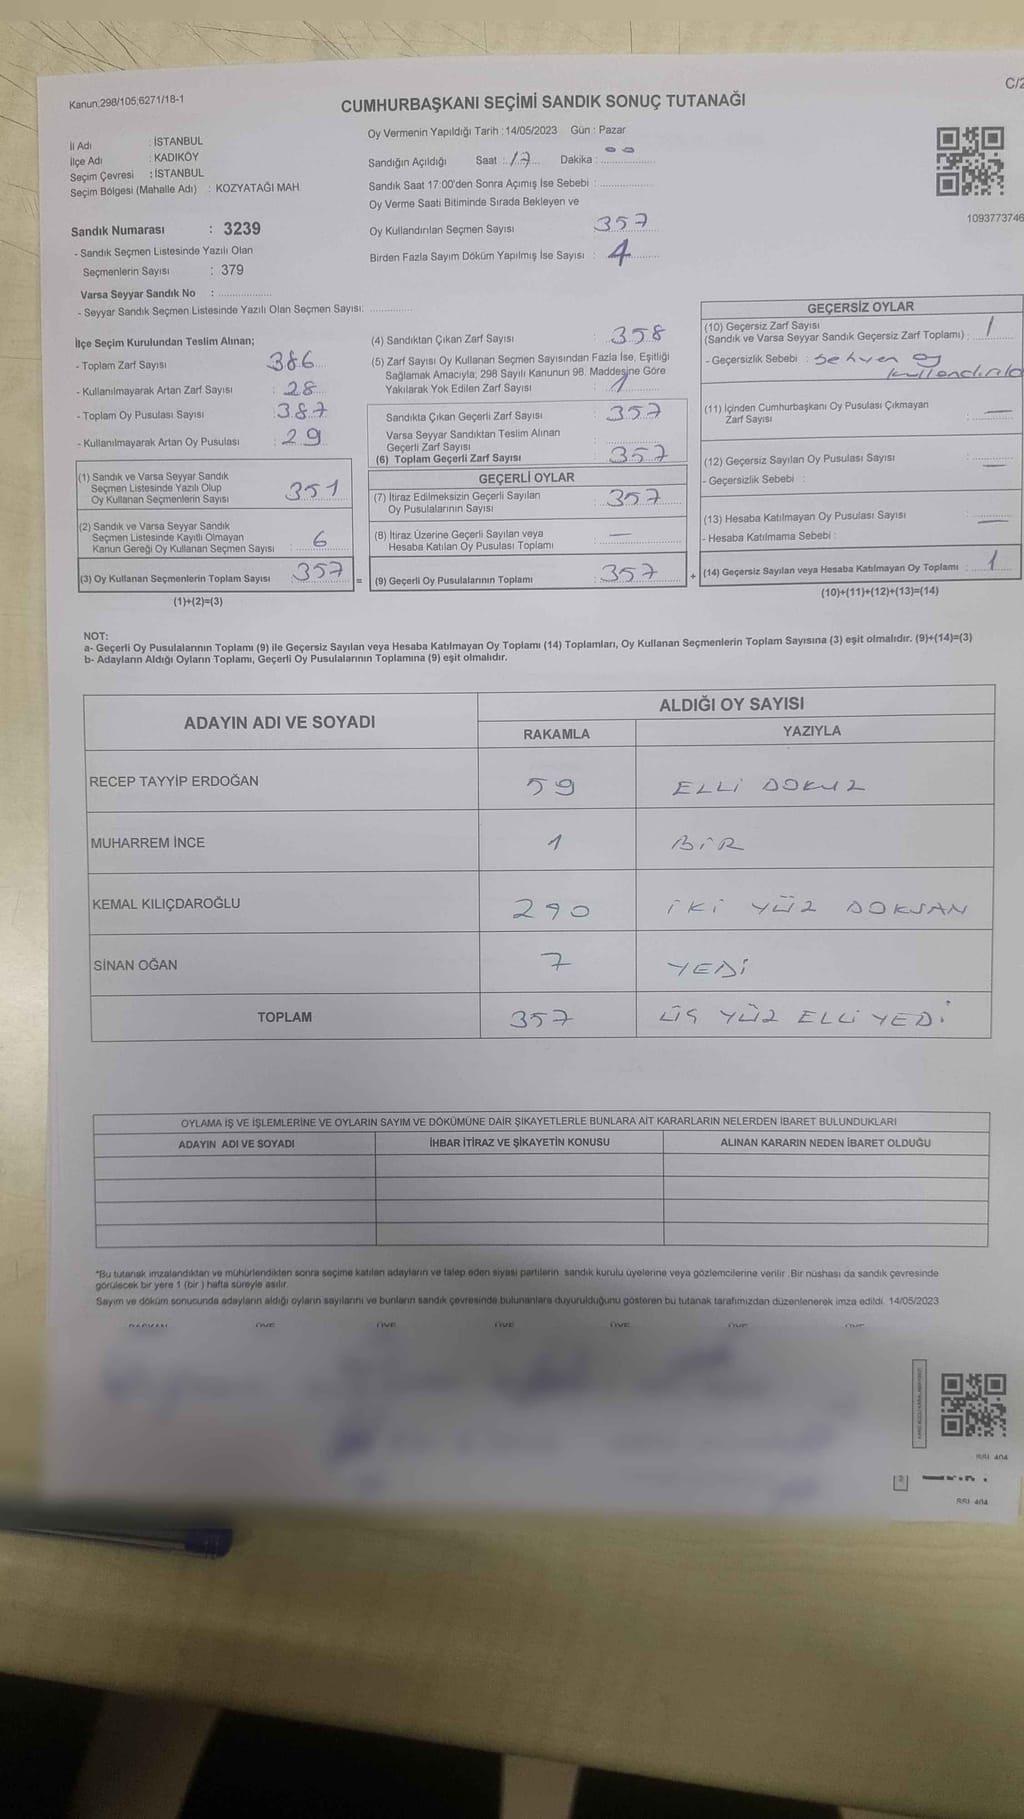 Kanun;298/105;6271/18-1
C/2
CUMHURBAŞKANI SEÇİMİ SANDIK SONUÇ TUTANAĞI
İl Adı : İSTANBUL
İlçe Adı : KADIKÖY
Seçim Çevresi : İSTANBUL
Seçim Bölgesi (Mahalle Adı) : KOZYATAĞI MAH.
Sandık Numarası : 3239
- Sandık Seçmen Listesinde Yazılı Olan
Seçmenlerin Sayısı : 379
Varsa Seyyar Sandık No :
- Seyyar Sandık Seçmen Listesinde Yazılı Olan Seçmen Sayısı:
Oy Vermenin Yapıldığı Tarih : 14/05/2023 Gün : Pazar
Sandığın Açıldığı Saat : 17 Dakika : 00
Sandık Saat 17:00'den Sonra Açımış İse Sebebi :
Oy Verme Saati Bitiminde Sırada Bekleyen ve
Oy Kullandırılan Seçmen Sayısı 357
Birden Fazla Sayım Döküm Yapılmış İse Sayısı : 4
1093773746
İlçe Seçim Kurulundan Teslim Alınan;
- Toplam Zarf Sayısı 386
- Kullanılmayarak Artan Zarf Sayısı : 28
- Toplam Oy Pusulası Sayısı : 387
- Kullanılmayarak Artan Oy Pusulası : 29
(1) Sandık ve Varsa Seyyar Sandık
Seçmen Listesinde Yazılı Olup
Oy Kullanan Seçmenlerin Sayısı 351
(2) Sandık ve Varsa Seyyar Sandık
Seçmen Listesinde Kayıtlı Olmayan
Kanun Gereği Oy Kullanan Seçmen Sayısı : 6
(3) Oy Kullanan Seçmenlerin Toplam Sayısı 357
(1)+(2)=(3)
(4) Sandıktan Çıkan Zarf Sayısı : 358
(5) Zarf Sayısı Oy Kullanan Seçmen Sayısından Fazla İse, Eşitliği
Sağlamak Amacıyla; 298 Sayılı Kanunun 98. Maddesine Göre
Yakılarak Yok Edilen Zarf Sayısı : 1
Sandıkta Çıkan Geçerli Zarf Sayısı : 357
Varsa Seyyar Sandıktan Teslim Alınan
Geçerli Zarf Sayısı
(6) Toplam Geçerli Zarf Sayısı : 357
GEÇERLİ OYLAR
(7) İtiraz Edilmeksizin Geçerli Sayılan
Oy Pusulalarının Sayısı : 357
(8) İtiraz Üzerine Geçerli Sayılan veya
Hesaba Katılan Oy Pusulası Toplamı : —
= (9) Geçerli Oy Pusulalarının Toplamı : 357
GEÇERSİZ OYLAR
(10) Geçersiz Zarf Sayısı
(Sandık ve Varsa Seyyar Sandık Geçersiz Zarf Toplamı) : 1
- Geçersizlik Sebebi : Sehven oy
kullandırıldı
(11) İçinden Cumhurbaşkanı Oy Pusulası Çıkmayan
Zarf Sayısı : —
(12) Geçersiz Sayılan Oy Pusulası Sayısı : —
- Geçersizlik Sebebi :
(13) Hesaba Katılmayan Oy Pusulası Sayısı : —
- Hesaba Katılmama Sebebi :
+ (14) Geçersiz Sayılan veya Hesaba Katılmayan Oy Toplamı : 1
(10)+(11)+(12)+(13)=(14)
NOT:
a- Geçerli Oy Pusulalarının Toplamı (9) ile Geçersiz Sayılan veya Hesaba Katılmayan Oy Toplamı (14) Toplamları, Oy Kullanan Seçmenlerin Toplam Sayısına (3) eşit olmalıdır. (9)+(14)=(3)
b- Adayların Aldığı Oyların Toplamı, Geçerli Oy Pusulalarının Toplamına (9) eşit olmalıdır.
ADAYIN ADI VE SOYADI ALDIĞI OY SAYISI
RAKAMLA YAZIYLA
RECEP TAYYİP ERDOĞAN 59 ELLİ DOKUZ
MUHARREM İNCE 1 BİR
KEMAL KILIÇDAROĞLU 290 İKİ YÜZ DOKSAN
SİNAN OĞAN 7 YEDİ
TOPLAM 357 ÜÇ YÜZ ELLİ YEDİ
OYLAMA İŞ VE İŞLEMLERİNE VE OYLARIN SAYIM VE DÖKÜMÜNE DAİR ŞİKAYETLERLE BUNLARA AİT KARARLARIN NELERDEN İBARET BULUNDUKLARI
ADAYIN ADI VE SOYADI İHBAR İTİRAZ VE ŞİKAYETİN KONUSU ALINAN KARARIN NEDEN İBARET OLDUĞU
*Bu tutanak imzalandıktan ve mühürlendikten sonra seçime katılan adayların ve talep eden siyasi partilerin sandık kurulu üyelerine veya gözlemcilerine verilir .Bir nüshası da sandık çevresinde
görülecek bir yere 1 (bir ) hafta süreyle asılır.
Sayım ve döküm sonucunda adayların aldığı oyların sayılarını ve bunların sandık çevresinde bulunanlara duyurulduğunu gösteren bu tutanak tarafımızdan düzenlenerek imza edildi. 14/05/2023
BAŞKAN ÜYE ÜYE ÜYE ÜYE ÜYE ÜYE